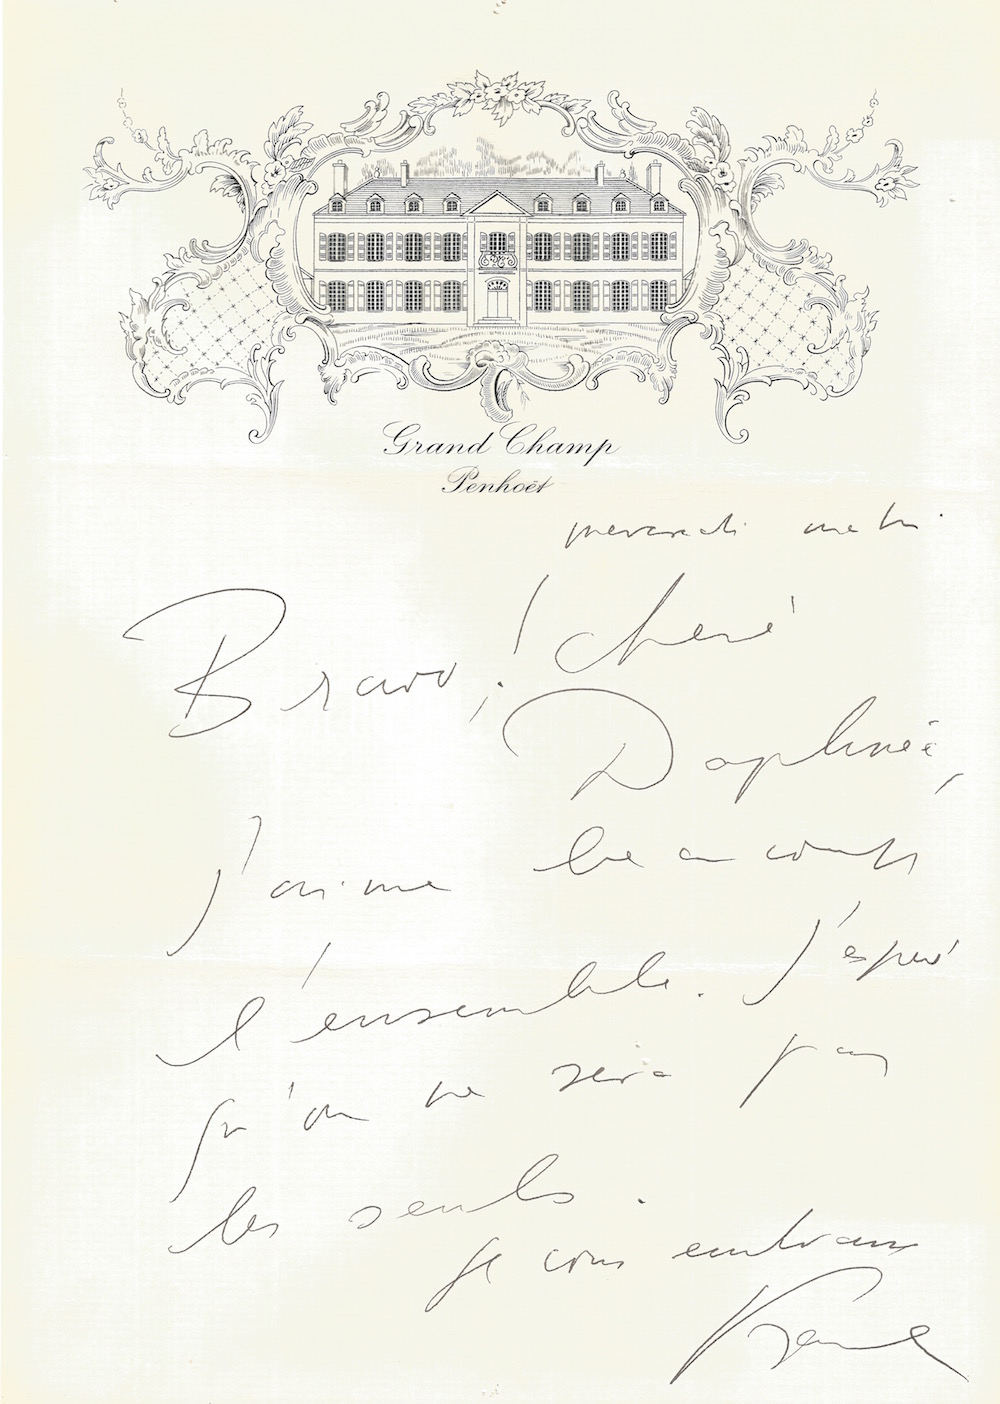 Grand Champ
Penhoët
mercredi matin.
Bravo, ! chère
Daphnée,
j'aime beaucoup
l'ensemble. J'espère
qu'on ne sera pas
les seuls.
je vous embrasse